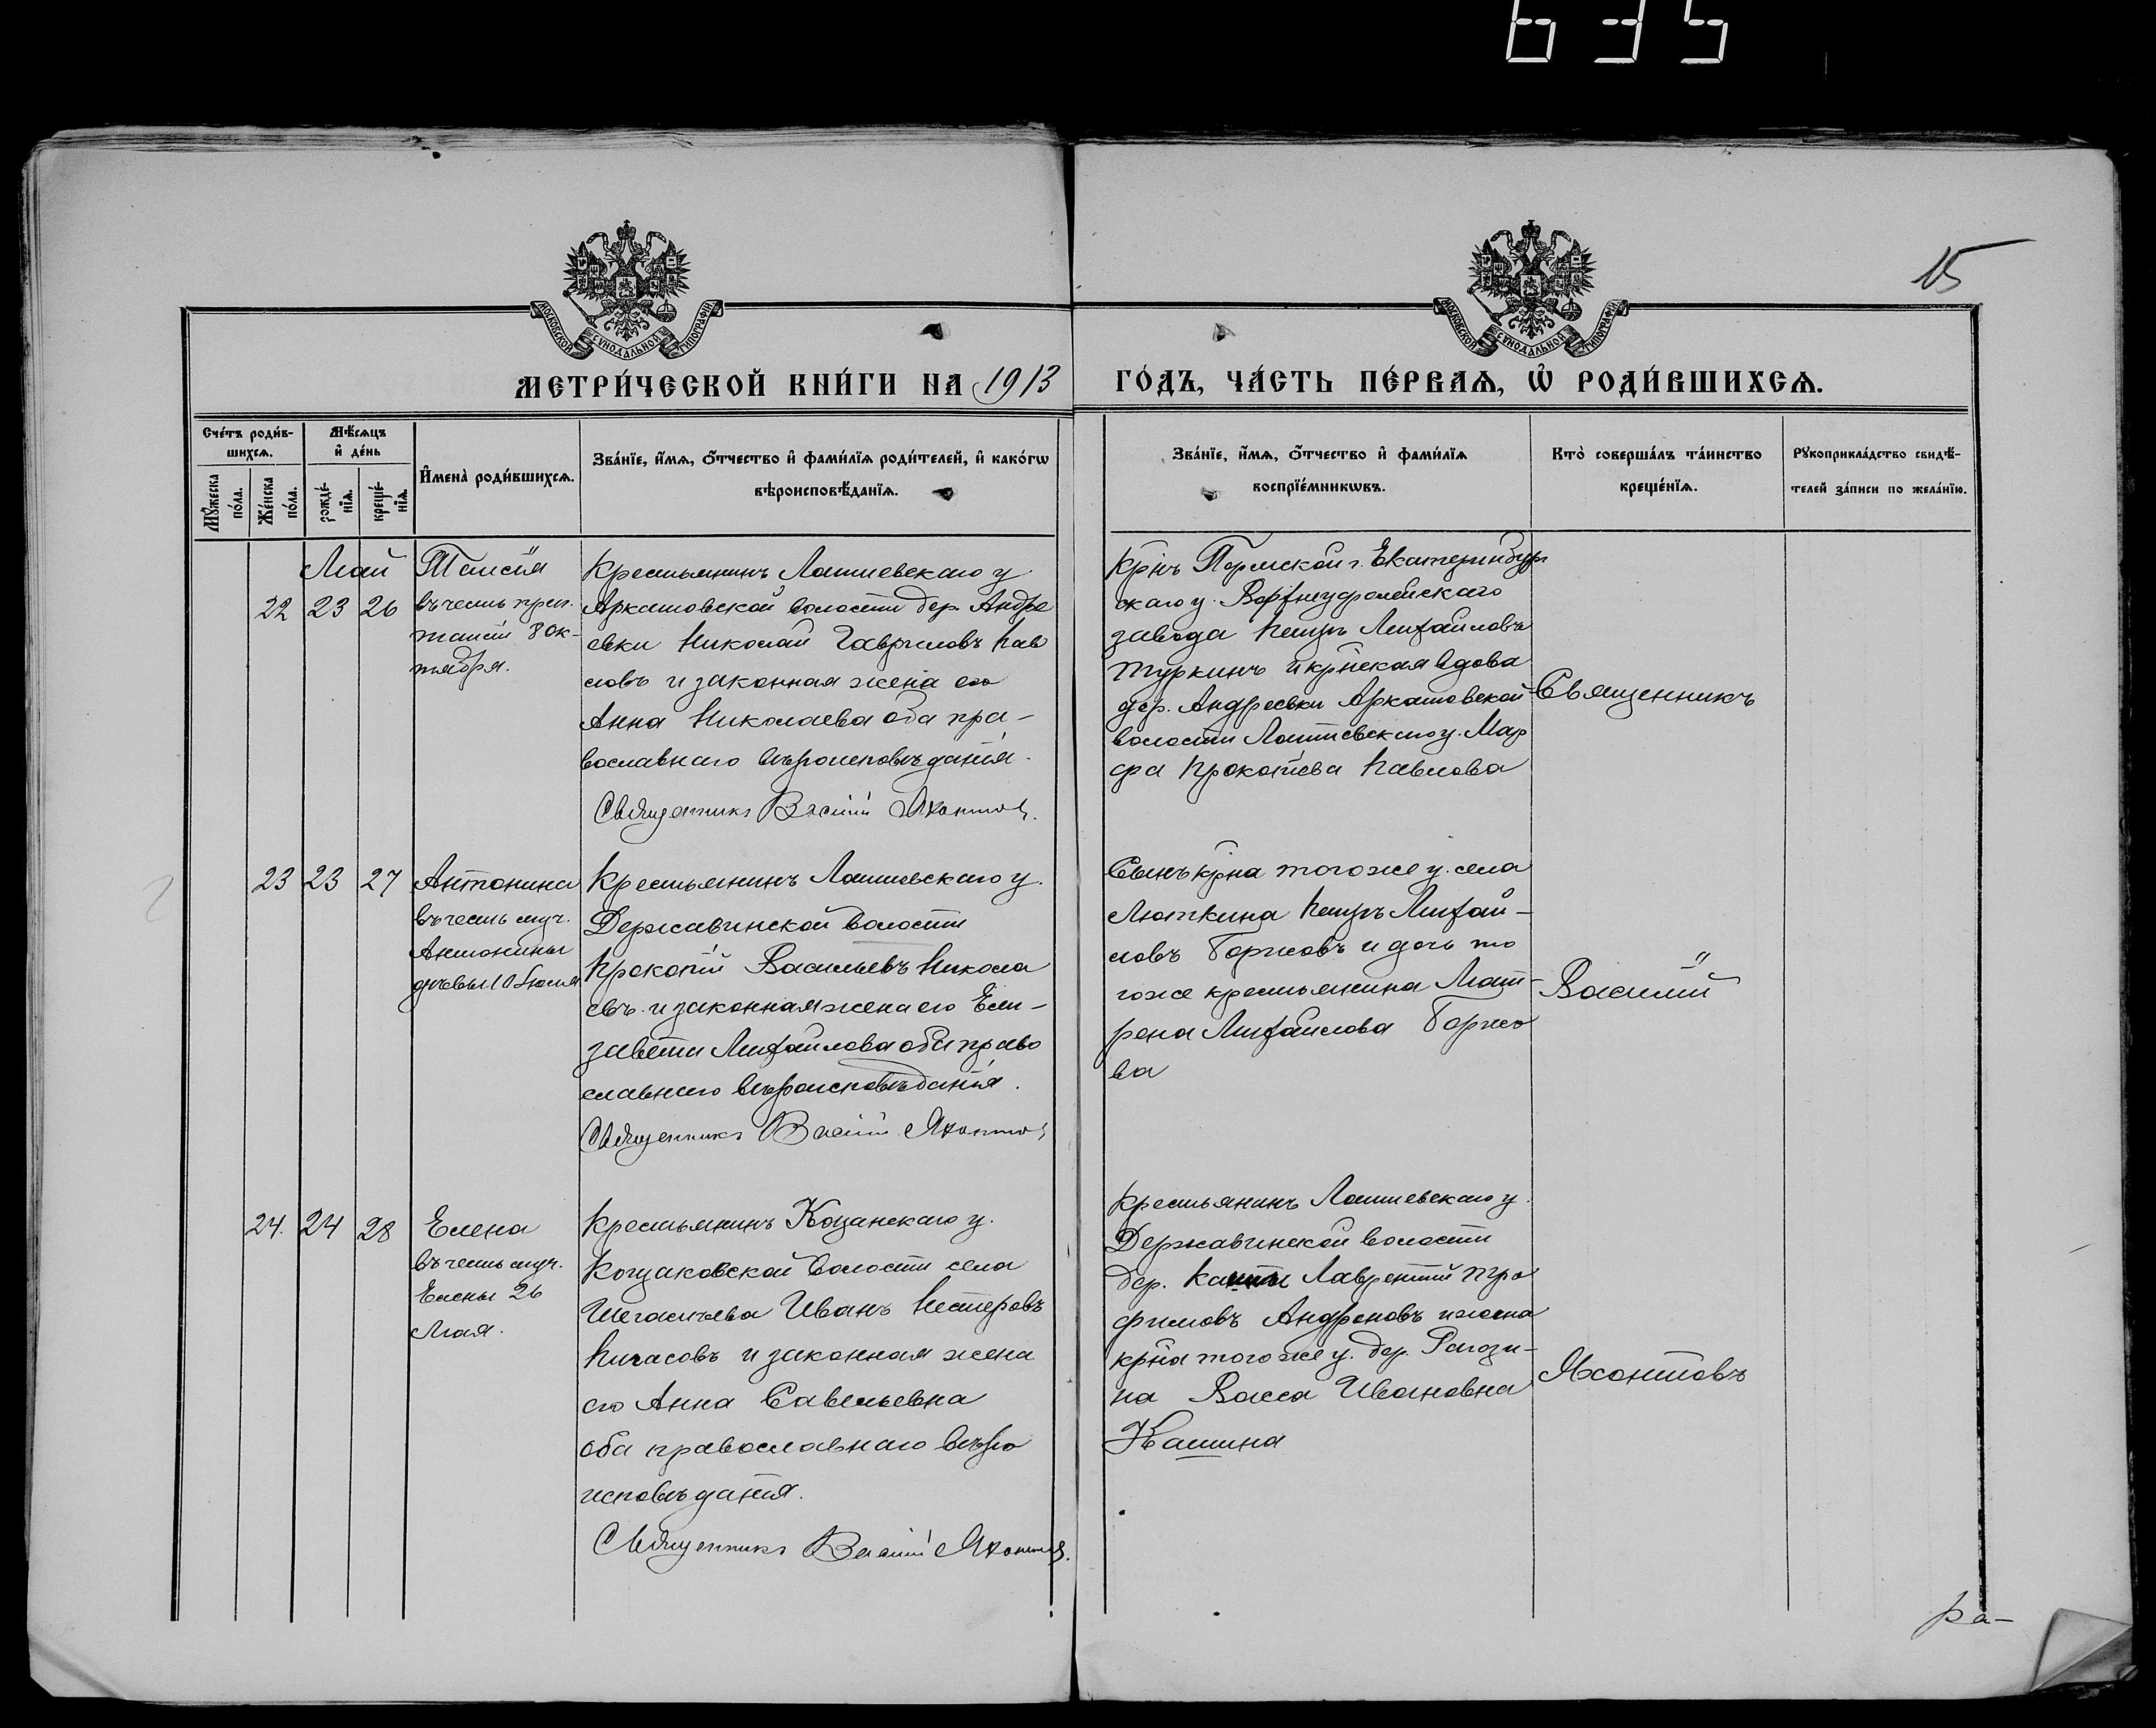 635
15
МОСКОВСКОЙ СѴНОДАЛЬНОЙ ТИПОГРАФІИ
МОСКОВСКОЙ СѴНОДАЛЬНОЙ ТИПОГРАФІИ
МЕТРИ́ЧЕСКОЙ КНИ́ГИ НА 1913 ГО́ДЪ, ЧА́СТЬ ПЕ́РВАѦ, Ѡ҆ РОДИ́ВШИХСѦ.
Сче́тъ роди́в-
шихсѧ.
Мѣ́сѧцъ
и҆ де́нь
И҆мена̀ роди́вшихсѧ.
Зва́нїе, и҆́мѧ, ѻ҆́тчество и҆ фами́лїѧ роди́телей, и҆ како́гѡ
вѣроисповѣ́данїѧ.
Зва́нїе, и҆́мѧ, ѻ҆́тчество и҆ фами́лїѧ
воспрїе́мникѡвъ.
Кто̀ соверша́лъ та́инство
креще́нїѧ.
Рꙋкоприкла́дство свидѣ́-
телей за́писи по жела́нїю.
Мꙋ́жеска
по́ла.
Же́нска
по́ла.
рожде́-
нїѧ.
креще́-
нїѧ.
Май
22 23 26
Таисія
въ честь преп.
Таисіи 8 Ок-
тября.
Крестьянинъ Лаишевскаго у.
Аркатовской волости дер. Андре
евки Николай Гавриловъ Пав
ловъ и законная жена его
Анна Николаева оба пра-
вославнаго вѣроисповѣданія.
Священникъ Василій Яхонтовъ.
Кр̃нъ Пермской г. Екатеринбург
скаго у. Верхнеуфалейскаго
завода Петръ Михайловъ
Туркинъ и кр̃нская вдова
дер. Андреевки Аркатовской
волости Лаишевскаго у. Мар
фа Прокопіева Павлова
Священникъ
23 23 27
Антонина
въ честь муч.
Антонины
дѣвы 10 Іюня
Крестьянинъ Лаишевскаго у.
Державинской волости
Прокопій Васильевъ Никола
евъ и законная жена его Ели-
завета Михайлова оба право
славнаго вѣроисповѣданія.
Священникъ Василій Яхонтовъ
Сынъ кр̃на того же у. села
Люткина Петръ Михай-
ловъ Горшовъ и дочь то
гоже крестьянина Мат-
рена Михайлова Горшо
ва
Василій
24. 24 28
Елена
въ честь муч.
Елены 26
Мая.
Крестьянинъ Казанскаго у.
Кощаковской волости села
Шигалеева Иванъ Нестеровъ
Кичасовъ и законная жена
его Анна Савельевна
оба православнаго вѣро
исповѣданія.
Священникъ Василій Яхонтовъ.
Крестьянинъ Лаишевскаго у.
Державинской волости
дер. Лаврентій Тро
фимовъ Андроновъ и жена
кр̃на того же у. дер. Рагози-
на Васса Ивановна
Квашина
Яхонтовъ
ра-